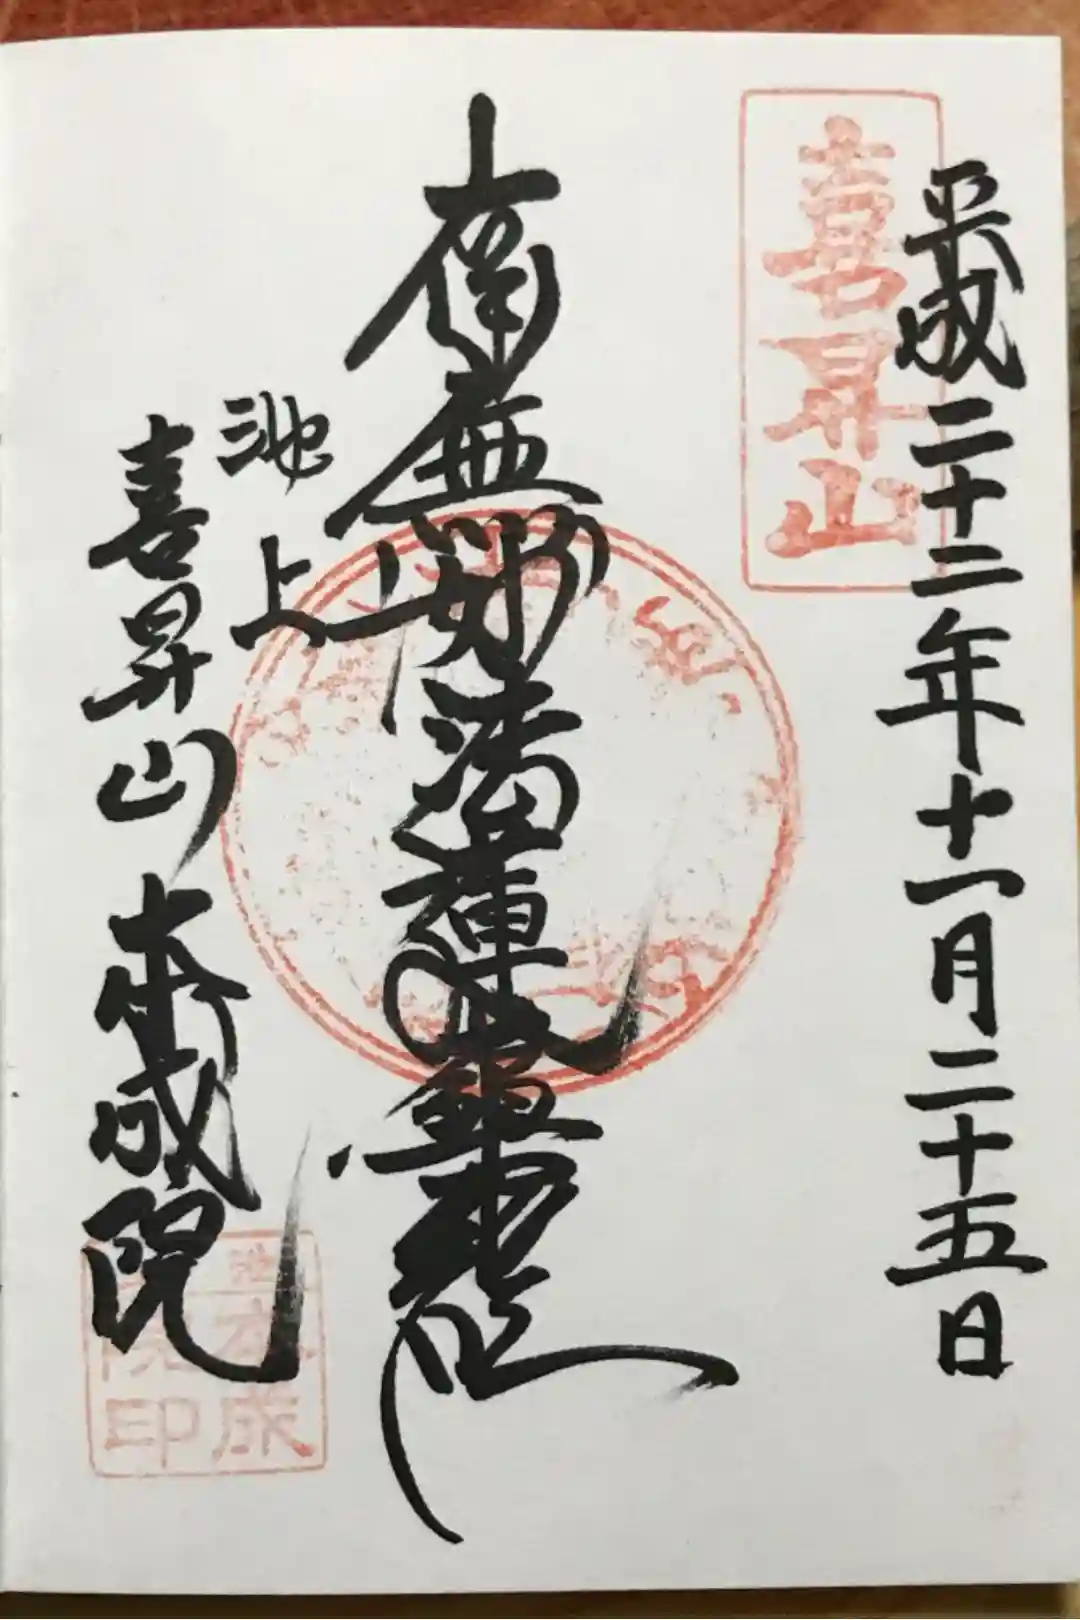 平成二十二年十一月二十五日
喜昇山
南無妙法蓮華經
池上
喜昇山本成院
池上
本成
院印